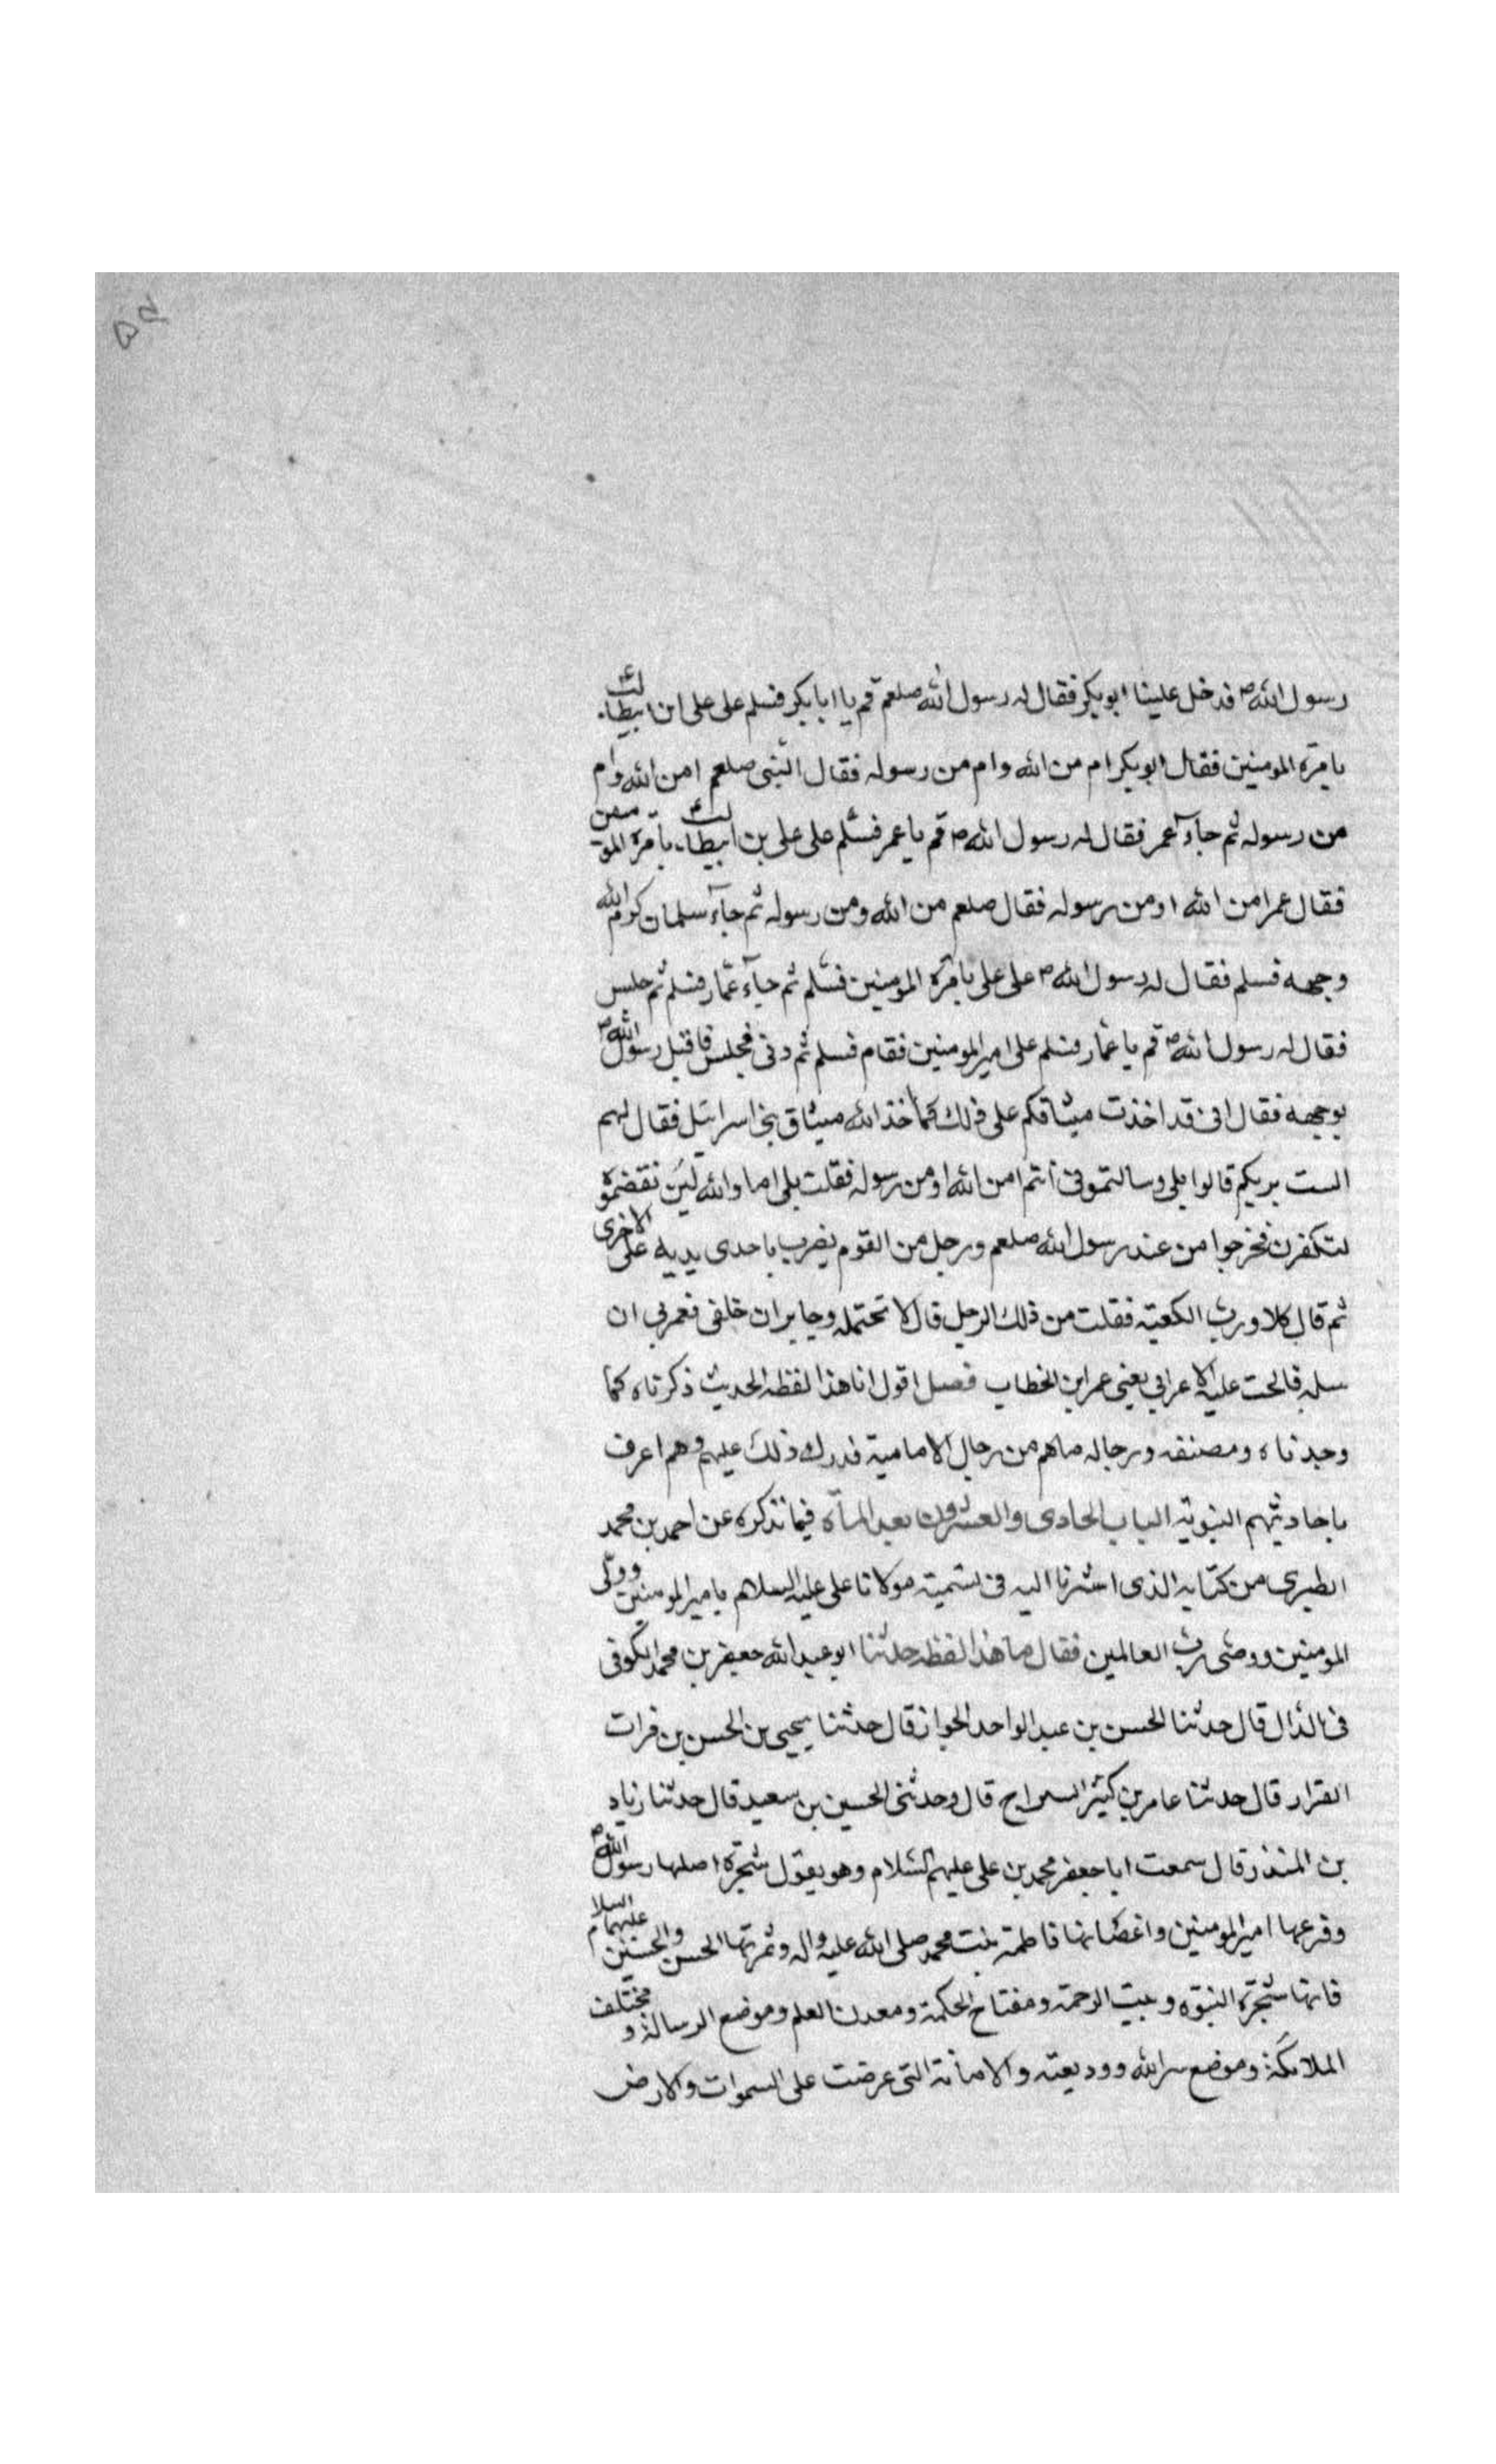 ٥٤
رسول الله ص فدخل علينا ابوبكر فقال له رسول الله صلعم قم يا ابا بكر فسلم على على ابن ابيطالب ع
بامرة المومنين فقال ابوبكر ام من الله وام من رسوله فقال النبى صلعم امن الله وام
من رسوله ثم جآء عمر فقال له رسول الله ص قم يا عمر فسلم على على بن ابيطالب ع بامرة المؤمنين
فقال عمر امن الله اومن رسوله فقال صلعم من الله ومن رسوله ثم جآء سلمان كرم الله
وجهه فسلم فقال له رسول الله ص على على بامرة المومنين فسلم ثم جآء عمار فسلم ثم جلس
فقال له رسول الله ص قم يا عمار فسلم على امير المومنين فقام فسلم ثم دنى فجلس فاقبل رسول الله ص
بوجهه فقال انى قد اخذت ميثاقكم على ذلك كما اخذ الله ميثاق بنى اسرائيل فقال لهم
الست بربكم قالوا بلى وسالتمونى انتم امن الله اومن رسوله فقلت بلى اما والله لئن نقضتموه
لتكفرن فخرجوا من عند رسول الله صلعم ورجل من القوم يضرب باحدى يديه على الاخرى
ثم قال كلا ورب الكعبة فقلت من ذلك الرجل قال لا تحتمله وجابران خلفى فغمزنى ان
سله فالحت عليه الاعرابي يعنى عمر ابن الخطاب فصل اقول انا هذا لفظه الحديث ذكرناه كما
وجدناه ومصنفه ورجاله ماهم من رجال الامامية فدرك ذلك عليهم وهم اعرف
باحاديثهم النبوية الباب الحادى والعشرون بعد المآة فيما نذكره عن احمد بن محمد
الطبرى من كتابه الذى اشرنا اليه فى تسمية مولانا على عليه السلام بامير المومنين وولى
المومنين ووصى رب العالمين فقال ما هذا لفظه حدثنا ابو عبد الله جعفر بن محمد الكوفى
فى الدال قال حدثنا الحسن بن عبد الواحد الخواز قال حدثنا يحيى بن الحسن بن فرات
القزار قال حدثنا عامر بن كثير السراج قال وحدثنى الحسين بن سعيد قال حدثنا زياد
بن المنذر قال سمعت ابا جعفر محمد بن على عليهم السلام وهو يقول شجرة اصلها رسول الله ص
وفرعها امير المومنين واغصانها فاطمة بنت محمد صلى الله عليه واله وثمرتها الحسن والحسين عليهما السلام
فانها شجرة النبوه وبيت الرحمة ومفتاح الحكمة ومعدن العلم وموضع الرسالة ومختلف
الملائكة وموضع سر الله ووديعته والامانة التى عرضت على السموات والارض